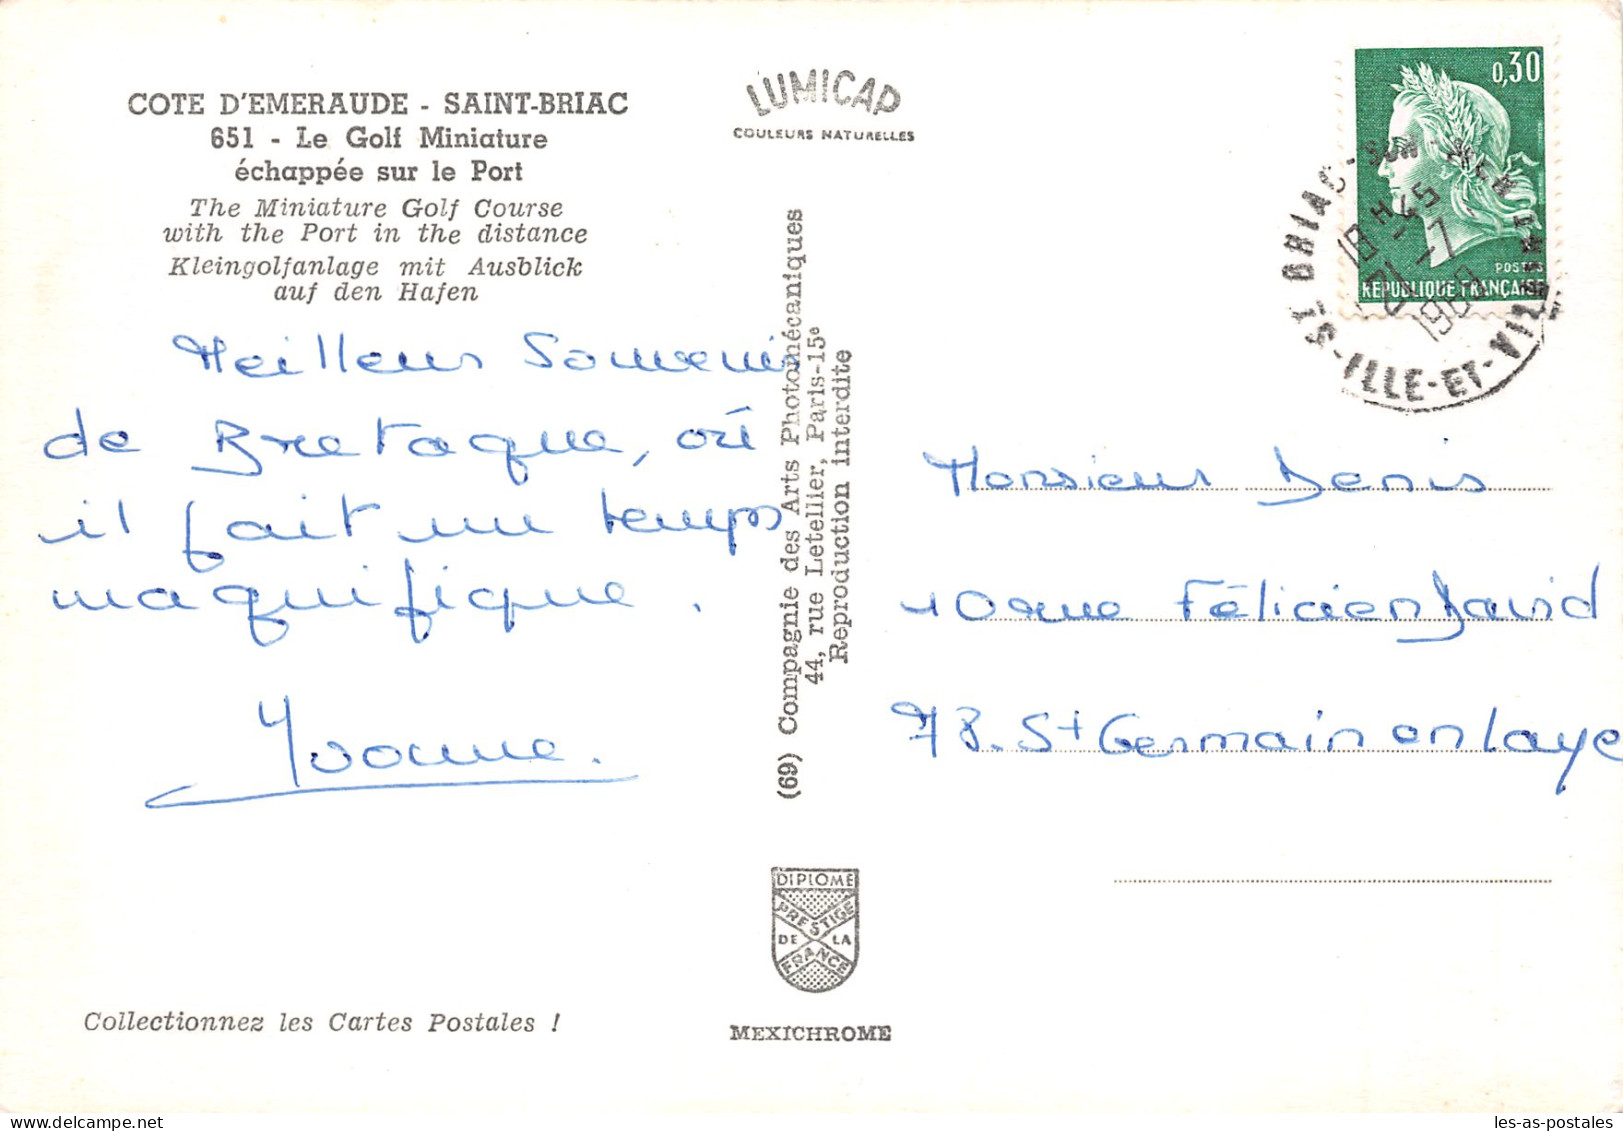 COTE D'EMERAUDE - SAINT-BRIAC
651 - Le Golf Miniature
échappée sur le Port
The Miniature Golf Course
with the Port in the distance
Kleingolfanlage mit Ausblick
auf den Hafen
Meilleur Souvenir
de Bretagne, où
il fait un temps
magnifique.
Yvonne.
Collectionnez les Cartes Postales !
LUMICAP
COULEURS NATURELLES
(69) Compagnie des Arts Photomécaniques
44, rue Letellier, Paris-15e
Reproduction interdite
DIPLOME
PRESTIGE
DE LA
FRANCE
MEXICHROME
0,30
POSTES
REPUBLIQUE FRANÇAISE
ST BRIAC-SUR-MER
18 H 45
21-7
ILLE-ET-VILAINE
Monsieur Denis
10 rue Félicien David
78. St Germain en Laye
les-as-postales